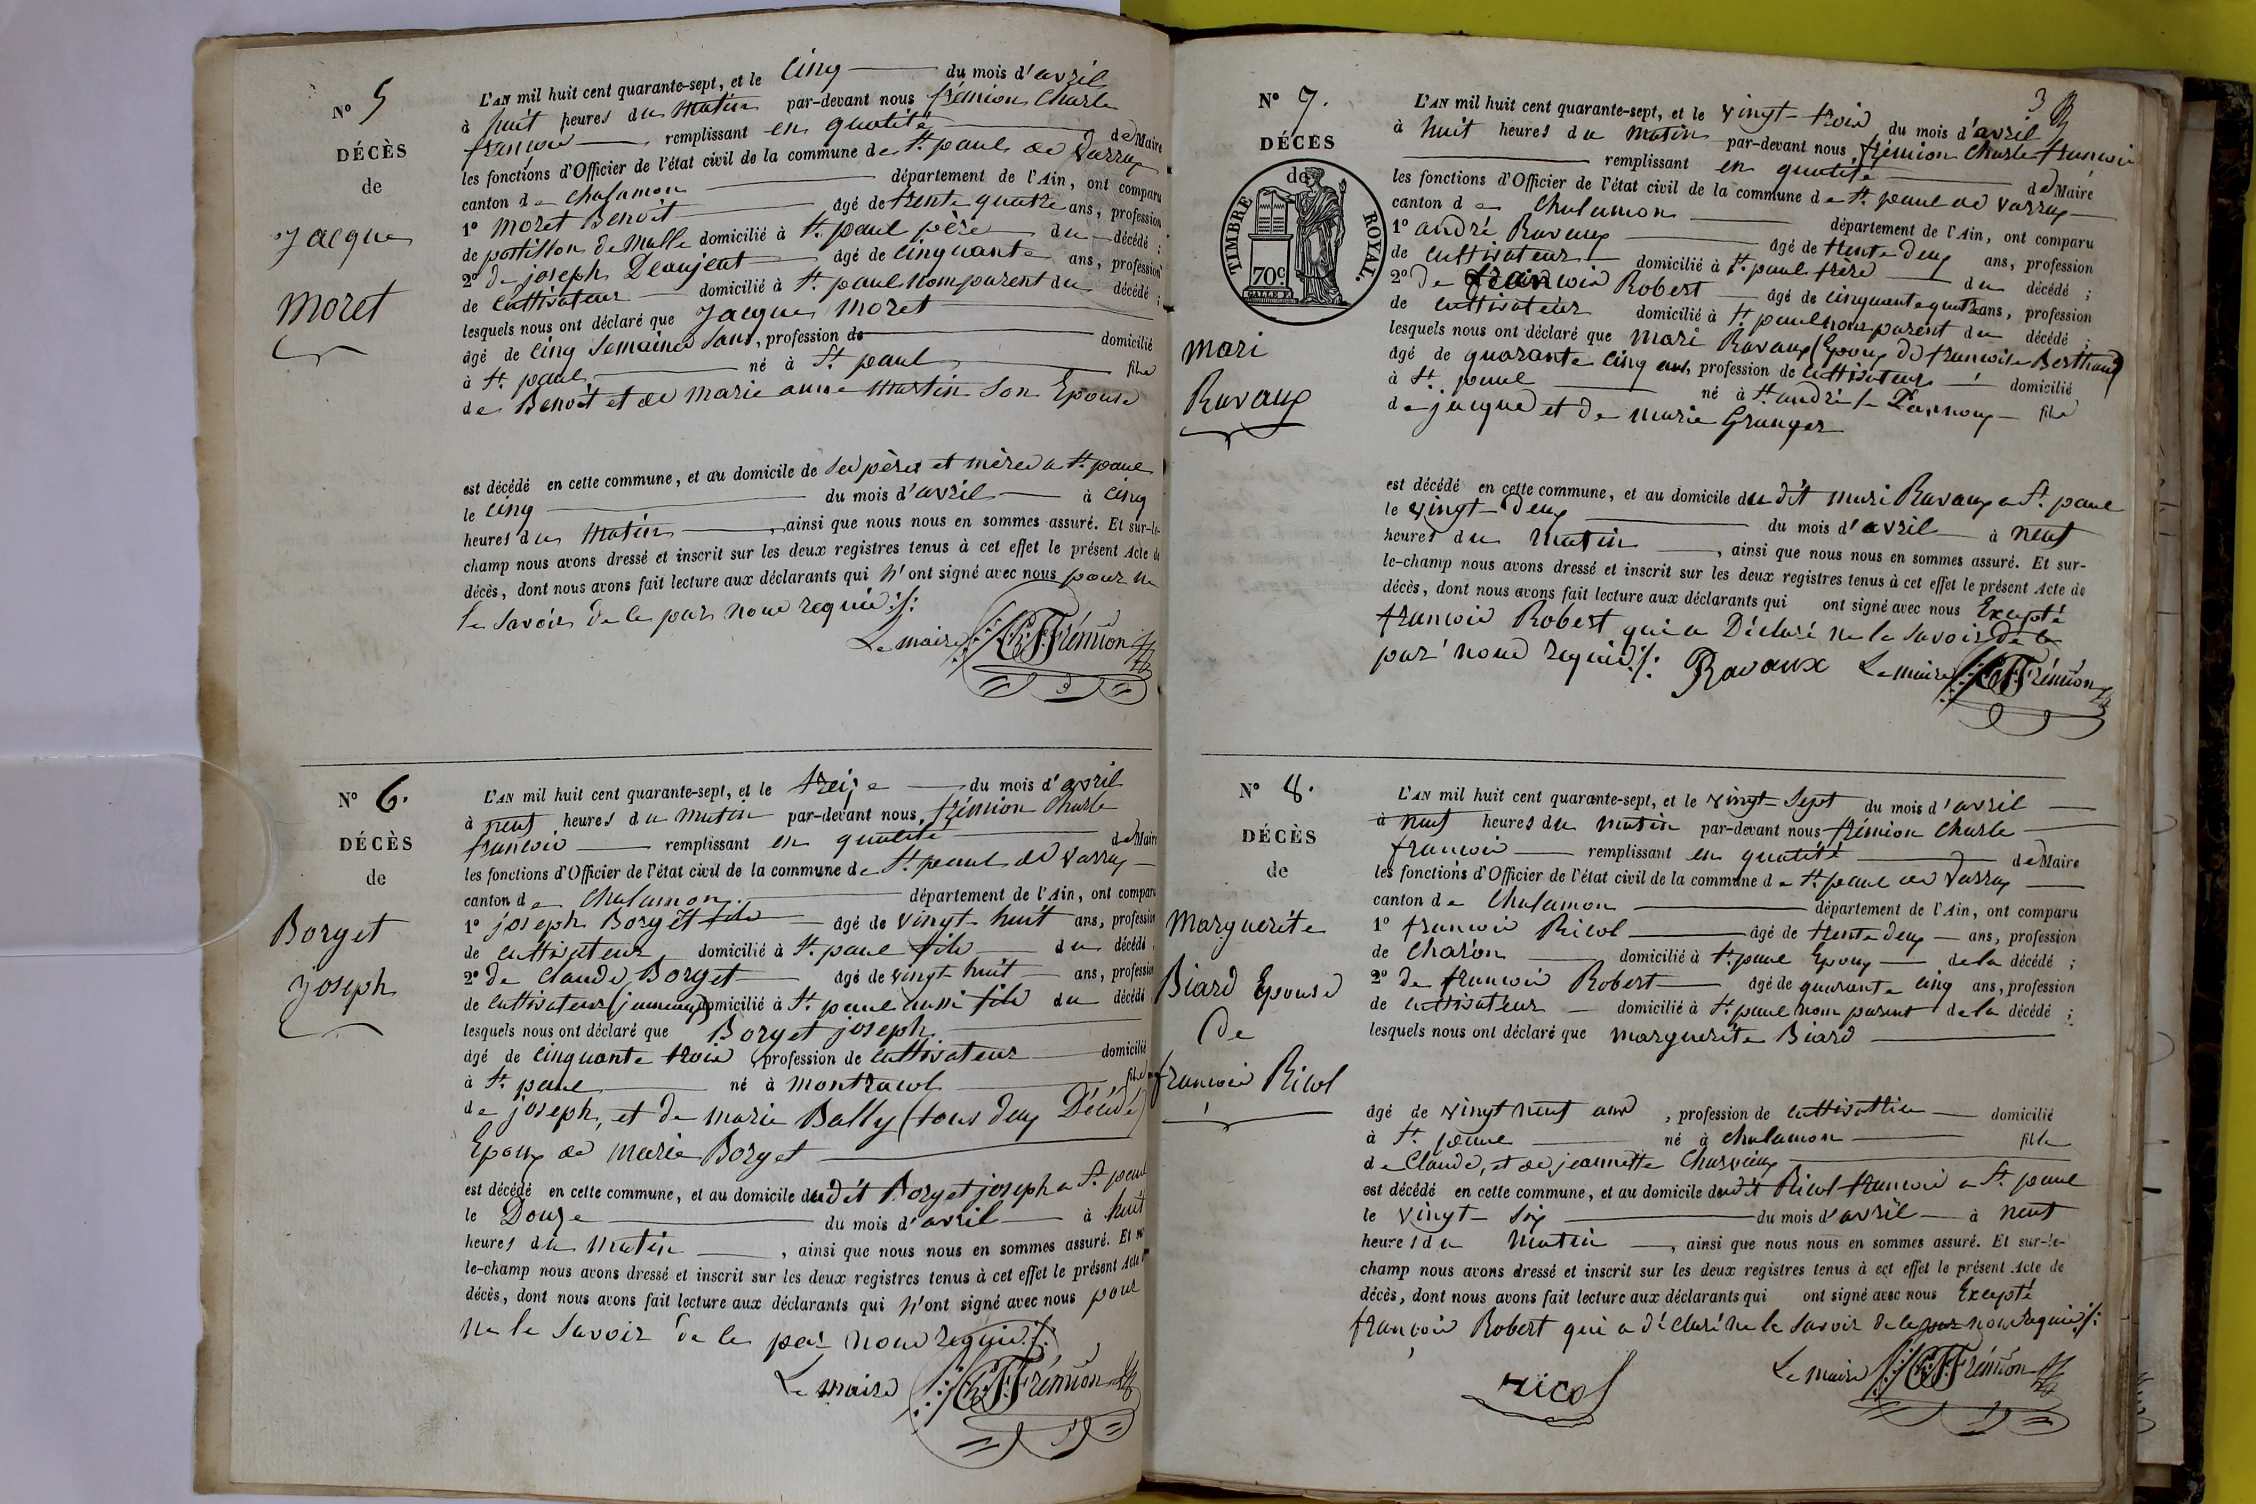 N° 5
DÉCÈS
de
Jacque
Moret
L'AN mil huit cent quarante-sept, et le cinq du mois d'avril
à huit heures du matin par-devant nous frémion Charle
francois remplissant en qualité de Maire
les fonctions d'Officier de l'état civil de la commune de St. paul de Varax
canton de Chalamon département de l'Ain, ont comparu
1° Moret Benoit âgé de trente quatre ans, profession
de postillon de Malle domicilié à St. paul père du décédé ;
2° de joseph Deaujeat âgé de cinquante ans, profession
de cultivateur domicilié à St. paul nom parent du décédé ;
lesquels nous ont déclaré que Jacque Moret
âgé de cinq semaines sans, profession de domicilié
à St. paul né à St. paul fils
de Benoit et de marie anne martin son Epouse
est décédé en cette commune, et au domicile de ses pères et mères a St. paul
le cinq du mois d'avril à cinq
heures du matin, ainsi que nous nous en sommes assuré. Et sur-le-
champ nous avons dressé et inscrit sur les deux registres tenus à cet effet le présent Acte de
décès, dont nous avons fait lecture aux déclarants qui n'ont signé avec nous pour ne
le savoir de ce par nous requis ./.
Le maire Ch. F. Frémion
N° 6.
DÉCÈS
de
Borget
Joseph
L'AN mil huit cent quarante-sept, et le treize du mois d'avril
à neuf heures du matin par-devant nous, frémion Charle
francois remplissant en qualité de Maire
les fonctions d'Officier de l'état civil de la commune de St. paul de Varax
canton de Chalamon département de l'Ain, ont comparu
1° joseph Borget fils âgé de vingt huit ans, profession
de cultivateur domicilié à St. paul fils du décédé ;
2° de Claude Borget âgé de vingt huit ans, profession
de cultivateur (jumeaux) domicilié à St. paul aussi fils du décédé
lesquels nous ont déclaré que Borget joseph
âgé de cinquante trois, profession de cultivateur domicilié
à St. paul né à montracol fils
de joseph, et de marie Bally (tous deux Décédé)
Epoux de Marie Borget
est décédé en cette commune, et au domicile dudit Borget joseph a St. paul
le Douze du mois d'avril à huit
heures du matin, ainsi que nous nous en sommes assuré. Et sur-
le-champ nous avons dressé et inscrit sur les deux registres tenus à cet effet le présent Acte de
décès, dont nous avons fait lecture aux déclarants qui n'ont signé avec nous pour
ne le savoir de ce par nous requis ./.
Le maire Ch. F. Frémion
3
N° 7.
DÉCÈS
de
TIMBRE ROYAL.
70 c.
Mari
Ravaux
L'AN mil huit cent quarante-sept, et le vingt-trois du mois d'avril
à huit heures du matin par-devant nous, frémion Charle francois
remplissant en qualité de Maire
les fonctions d'Officier de l'état civil de la commune de St. paul de Varax
canton de Chalamon département de l'Ain, ont comparu
1° andré Ravaux âgé de trente deux ans, profession
de cultivateur domicilié à St. paul frère du décédé ;
2° de francois Robert âgé de cinquante quatre ans, profession
de cultivateur domicilié à St. paul nom parent du décédé ;
lesquels nous ont déclaré que Mari Ravaux (Epoux de francoise Berthaud)
âgé de quarante cinq ans, profession de cultivateur domicilié
à St. paul né à St. andré le Pannoux fils
de jacque et de marie Granger
est décédé en cette commune, et au domicile dudit mari Ravaux a St. paul
le vingt-deux du mois d'avril à neuf
heures du matin, ainsi que nous nous en sommes assuré. Et sur-
le-champ nous avons dressé et inscrit sur les deux registres tenus à cet effet le présent Acte de
décès, dont nous avons fait lecture aux déclarants qui ont signé avec nous Excepté
francois Robert qui a Déclaré ne le savoir de ce
par nous requis ./. Ravaux Le maire Ch. F. Frémion
N° 8.
DÉCÈS
de
Marguerite
Biard Epouse
De
francois Ricol
L'AN mil huit cent quarante-sept, et le vingt-sept du mois d'avril
à neuf heures du matin par-devant nous frémion Charle
francois remplissant en qualité de Maire
les fonctions d'Officier de l'état civil de la commune de St. paul de Varax
canton de Chalamon département de l'Ain, ont comparu
1° francois Ricol âgé de trente deux ans, profession
de Charon domicilié à St. paul Epoux de la décédé ;
2° de francois Robert âgé de quarante cinq ans, profession
de cultivateur domicilié à St. paul nom parent de la décédé ;
lesquels nous ont déclaré que Marguerite Biard
âgé de vingt neuf ans, profession de cultivatrice domicilié
à St. paul né à Chalamon fille
de Claude, et de jeannette Charvieux
est décédé en cette commune, et au domicile dudit Ricol francois a St. paul
le vingt-six du mois d'avril à neuf
heures du matin, ainsi que nous nous en sommes assuré. Et sur-le-
champ nous avons dressé et inscrit sur les deux registres tenus à cet effet le présent Acte de
décès, dont nous avons fait lecture aux déclarants qui ont signé avec nous Excepté
françois Robert qui a déclaré ne le savoir de ce par nous requis ./.
ricol Le maire Ch. F. Frémion